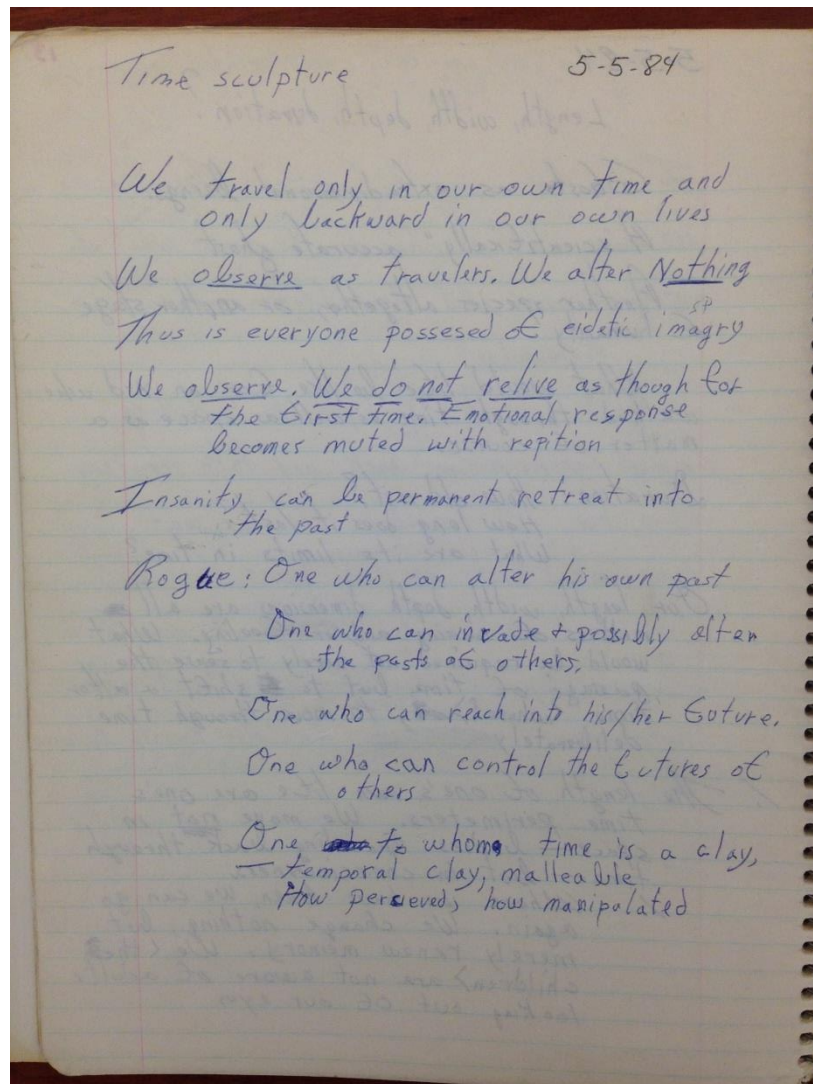 Time sculpture 5-5-84
We travel only in our own time and
only backward in our own lives
We observe as travelers. We alter Nothing
sp
Thus is everyone possesed of eidetic imagry
We observe. We do not relive as though for
the first time. Emotional response
becomes muted with repition
Insanity can be permanent retreat into
the past
Rogue: One who can alter his own past
One who can invade + possibly alter
the pasts of others.
One who can reach into his/her future.
One who can control the futures of
others
One to whom time is a clay,
— temporal clay, malleable
How percieved, how manipulated